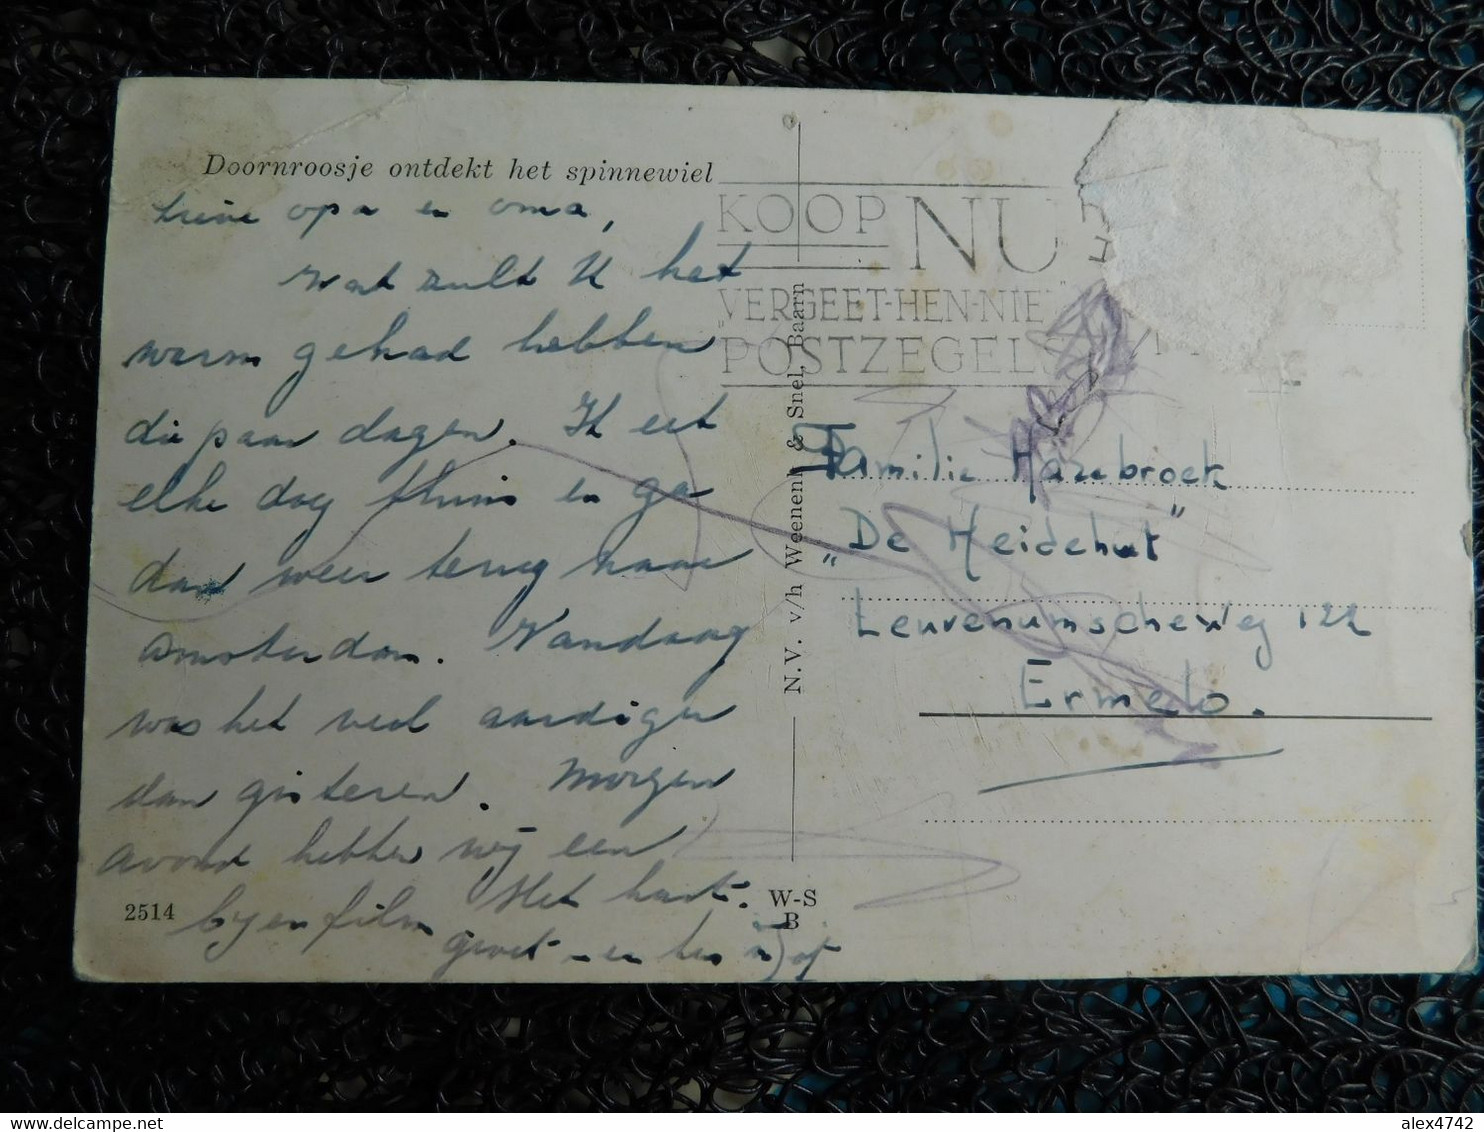 Doornroosje ontdekt het spinnewiel
Lieve opa en oma,
Wat zult U het
warm gehad hebben
die paar dagen. Ik eet
elke dag thuis en ga
dan weer terug naar
Amsterdam. Vandaag
was het veel aardiger
dan gisteren. Morgen
avond hebben wij een
bijen film Het kast.
groet en
2514
W-S
B
N.V. v/h Weenenk & Snel, Baarn
KOOP NU
"VERGEET-HEN-NIE
POSTZEGELS
Familie Hazebroek
„De Heidehut"
Leuvenumscheweg 122
Ermelo.
alex4742